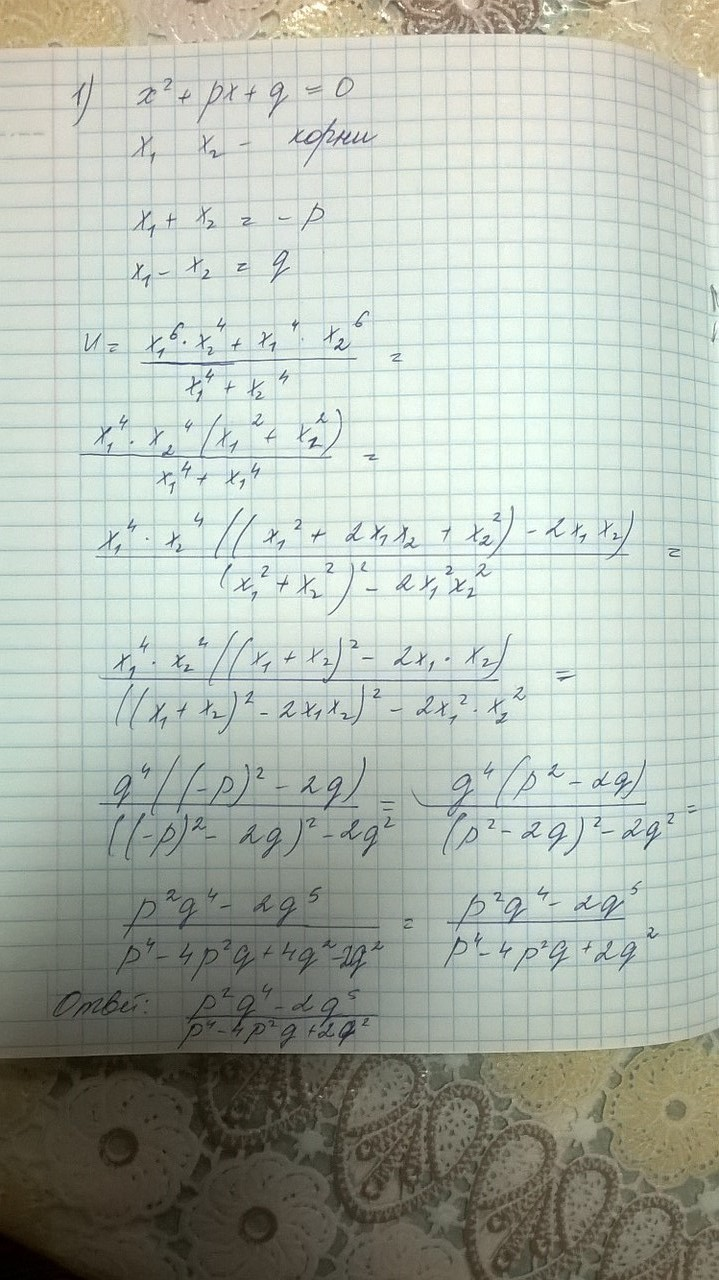 1) x² + px + q = 0
x₁ x₂ - корни
x₁ + x₂ = - p
x₁ - x₂ = q
U = (x₁⁶ · x₂⁴ + x₁⁴ · x₂⁶) / (x₁⁴ + x₂⁴) =
(x₁⁴ · x₂⁴ (x₁² + x₂²)) / (x₁⁴ + x₁⁴) =
(x₁⁴ · x₂⁴ ((x₁² + 2x₁x₂ + x₂²) - 2x₁x₂)) / ((x₁² + x₂²)² - 2x₁²x₂²) =
(x₁⁴ · x₂⁴ ((x₁ + x₂)² - 2x₁ · x₂)) / (((x₁ + x₂)² - 2x₁x₂)² - 2x₁² · x₂²) =
(q⁴((-p)² - 2q)) / (((-p)² - 2q)² - 2q²) = (q⁴(p² - 2q)) / ((p² - 2q)² - 2q²) =
(p²q⁴ - 2q⁵) / (p⁴ - 4p²q + 4q² - 2q²) = (p²q⁴ - 2q⁵) / (p⁴ - 4p²q + 2q²)
Ответ: (p²q⁴ - 2q⁵) / (p⁴ - 4p²q + 2q²)